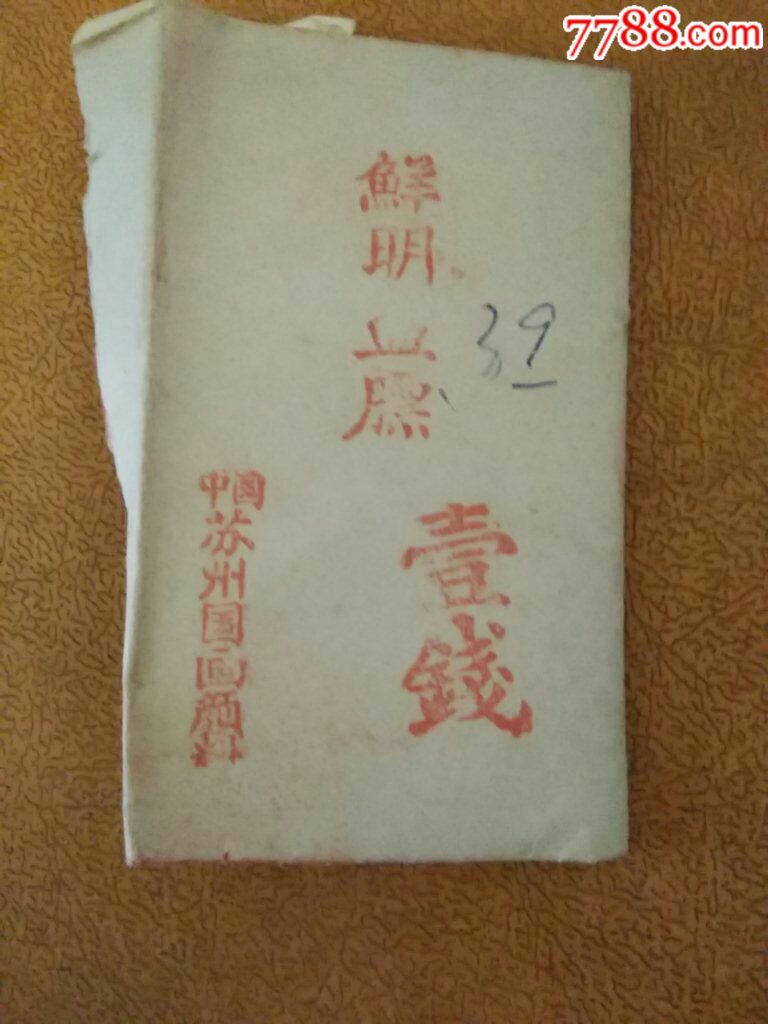 7788.com
鮮明
血膘
39
壹錢
中国苏州国画颜料